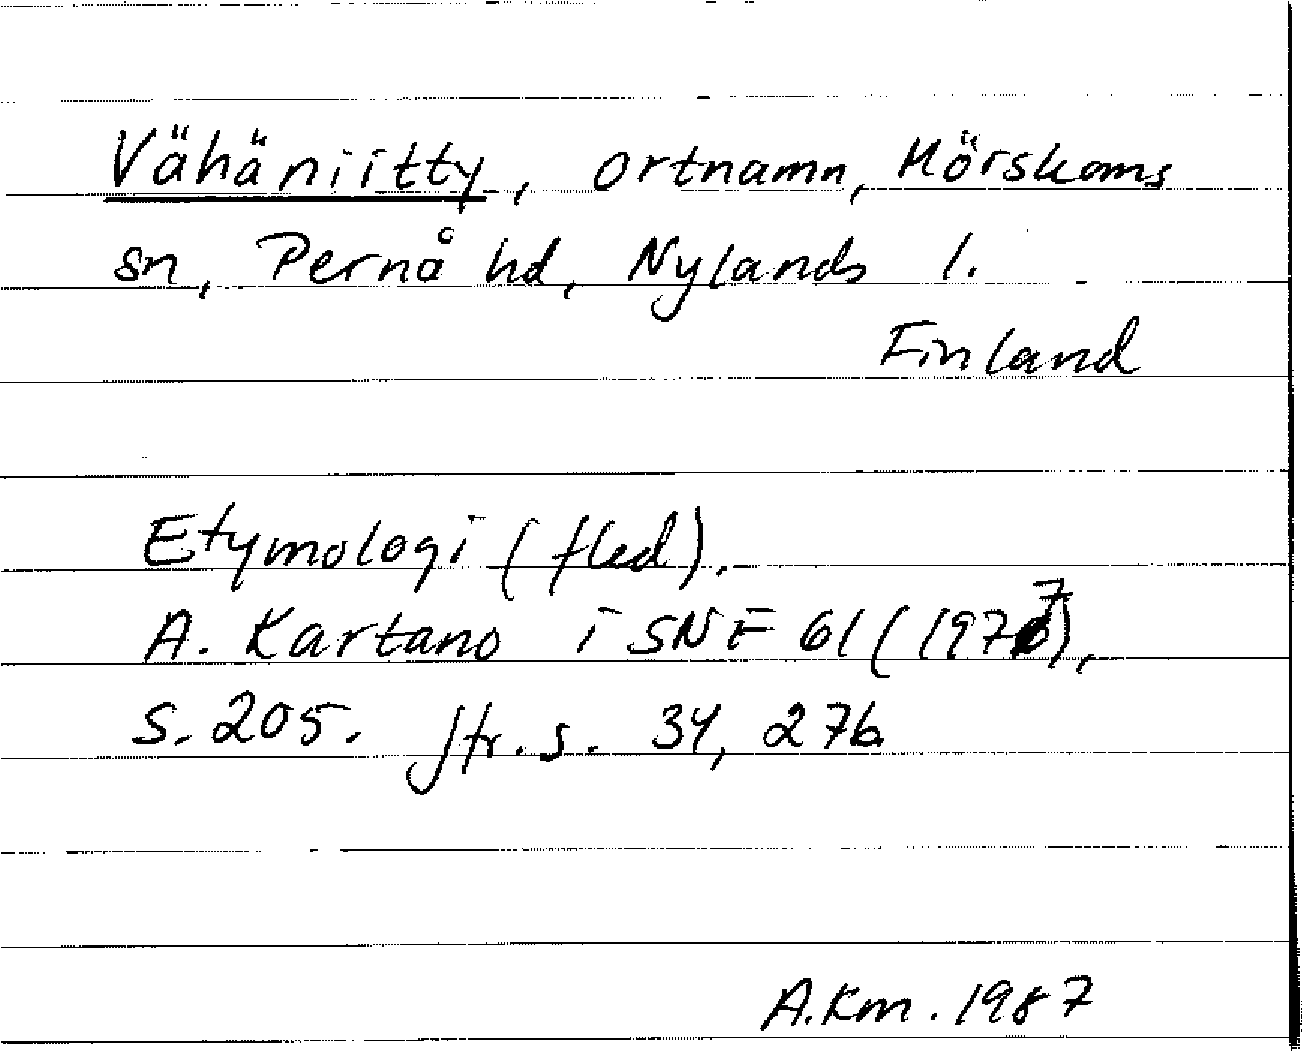 Vähäniitty, ortnamn, Mörskoms
sn, Pernå hd, Nylands l.
Finland
Etymologi (fled).
A. Kartano i SNF 61 (1977),
s. 205. Jfr. s. 34, 276
A.Km. 1987